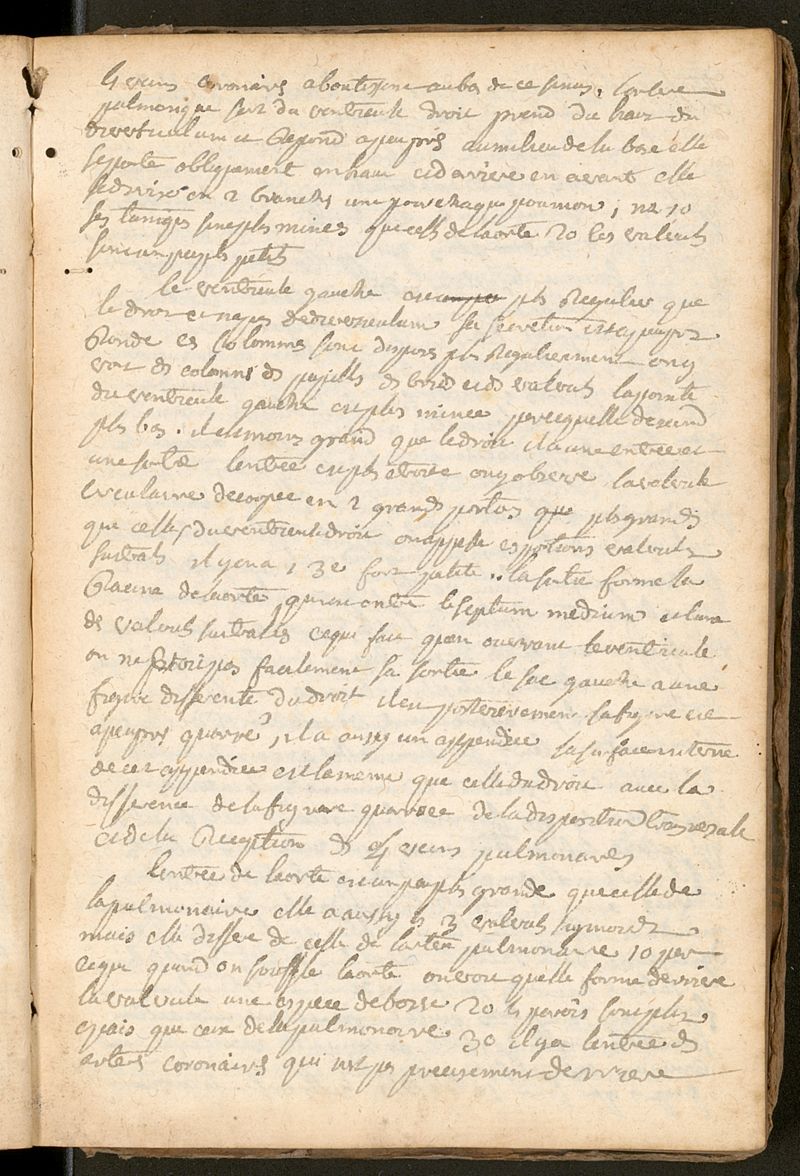 veines coronaires aboutissent au bas de ce sinus, l'artere
pulmonaire sort du ventricule droit prend du haut du
diverticulum et Repond apeuprés au milieu de la base elle
se porte obliquement en haut et darriere en avant elle
se divise en 2 branches une pour chaque poumon ; 10
ses tuniques sont pls minces que cells de laorte 20 les valvuls
sont un peu pls petits
le ventricule gauche est pls Regulier que
le droit et na pas de diverticulum sa section est apeuprés
Ronde es colomnes sont disposes pls Regulierement on y
voit ds colomns ds ds bords et ds valvuls la pointe
du ventricule gauche est pls mince parcequelle descend
pls bas . il est moins grand que le droit il a une entrée et
une sortie lentrée est pls etroite on y observe la valvule
circulaire decoupée en 2 grands portions pls grands
que cells du ventricule droit on appelle es portions valvuls
il y en a 1 3e fort petite .. la sortie forme la
Racine de laorte, qui est contre le septum medium et
ds valvuls ce qui fait quen ouvrant le ventricule
on ne pas facilement sa sortie le sac gauche a une
figure differente du droit il est posterieurement sa figure est
apeuprés quarré, il a aussy un appendice la surface interne
de cet appendice est la meme que celle du droit avec la
difference de la figure quarrée de la disposition transversale
et de la Reception ds 4 veines pulmonaires
lentrée de laorte est un peu pls grande que celle de
la pulmonaire elle a aussy 3 valvuls
mais elle differe de celle de lartere pulmonaire 10 par
ceque quand on souffle laorte on voit quelle forme derriere
la valvule une espece de bosse 20 ls parois sont pls
epais que ceux de la pulmonaire 30 il y a lentrée ds
arters coronaires qui nest pas precisement derriere